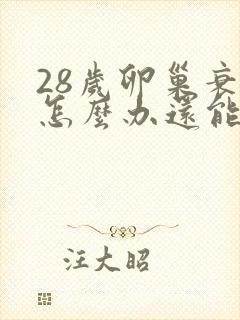 28歲卵巢衰
怎麼办還能
汪大昭